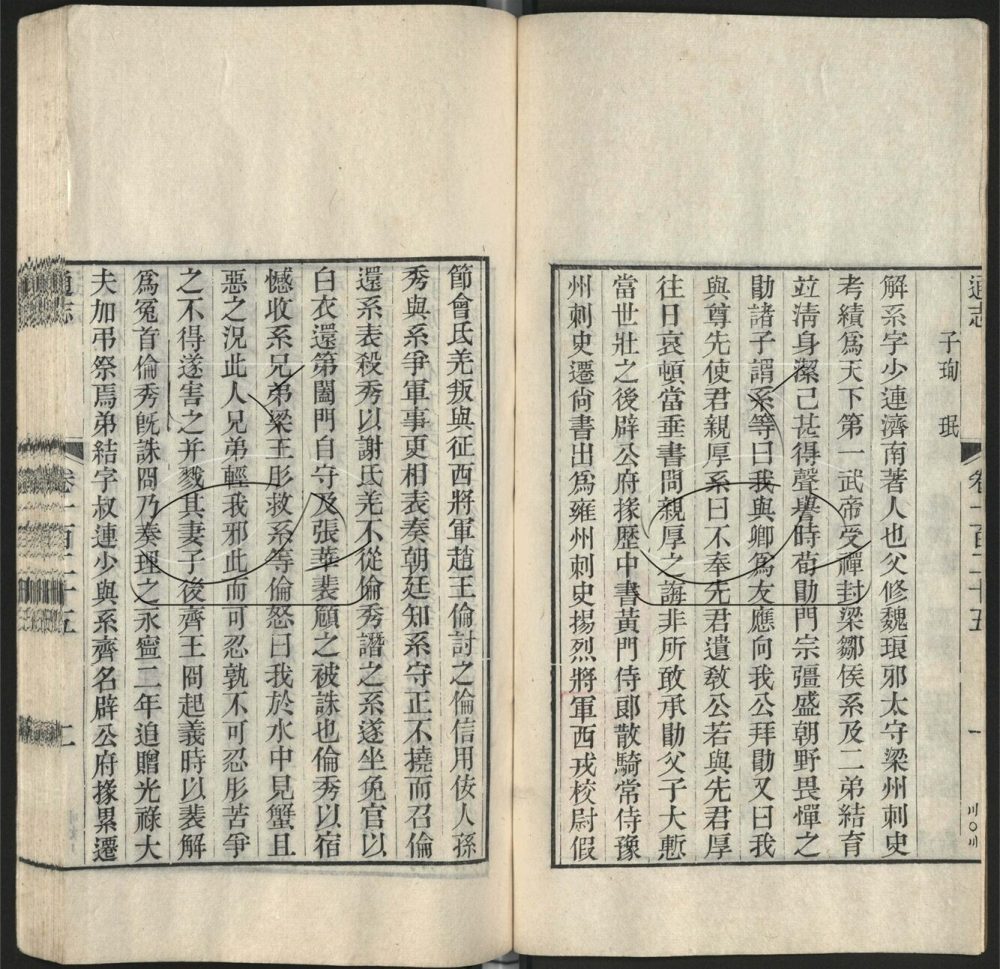 通志
卷一百二十五
一
子珣 珉
解系字少連濟南著人也父修魏琅邪太守梁州刺史
考績爲天下第一武帝受禪封梁鄒侯系及二弟結育
竝淸身潔己甚得聲譽時荀勖門宗彊盛朝野畏憚之
勖諸子謂系等曰我與卿爲友應向我公拜勖又曰我
與尊先使君親厚系曰不奉先君遺敎公若與先君厚
往日哀頓當垂書問親厚之誨非所敢承勖父子大慙
當世壯之後辟公府掾歷中書黃門侍郞散騎常侍豫
州刺史遷尙書出爲雍州刺史揚烈將軍西戎校尉假
節會氐羌叛與征西將軍趙王倫討之倫信用佞人孫
秀與系爭軍事更相表奏朝廷知系守正不撓而召倫
還系表殺秀以謝氐羌不從倫秀譖之系遂坐免官以
白衣還第闔門自守及張華裴頠之被誅也倫秀以宿
憾收系兄弟梁王肜救系等倫怒曰我於水中見蟹且
惡之況此人兄弟輕我邪此而可忍孰不可忍肜苦爭
之不得遂害之并戮其妻子後齊王冏起義時以裴解
爲冤首倫秀旣誅冏乃奏理之永寧二年追贈光祿大
夫加弔祭焉弟結字叔連少與系齊名辟公府掾累遷
通志
卷一百二十五